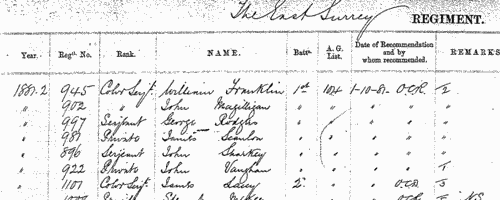 The East Surrey REGIMENT.
Year. Regtl. No. Rank. NAME. Batn. A. G. List. Date of Recommendation and by whom recommended. REMARKS
1881-2 945 Color Serjt. William Franklin 1st 104 1-10-81 O.C.R.
" 902 " John Magilligan " " " "
" 997 Serjeant George Rodgers " " "
" 987 Private James Scanlon " " "
" 896 Serjeant John Sharkey " " "
" 922 Private John Vaughan " " "
" 1107 Color Serjt. James Lacey 2 " " O.C.R.